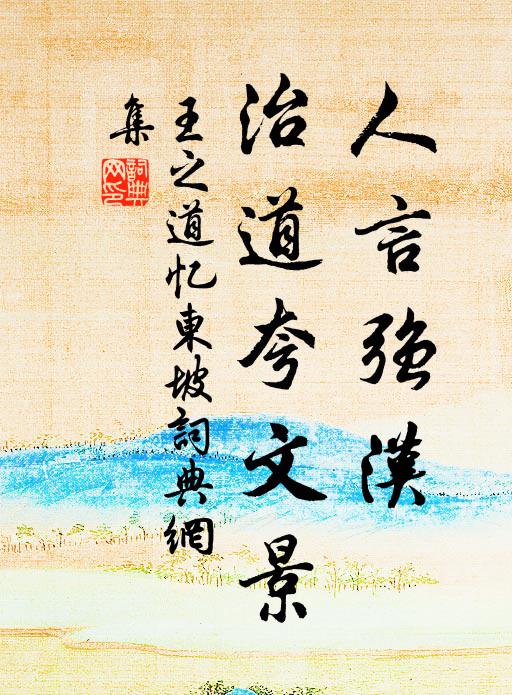 人言強漢
治道夸文景
王之道忆東坡詞典網
集
詞典网印